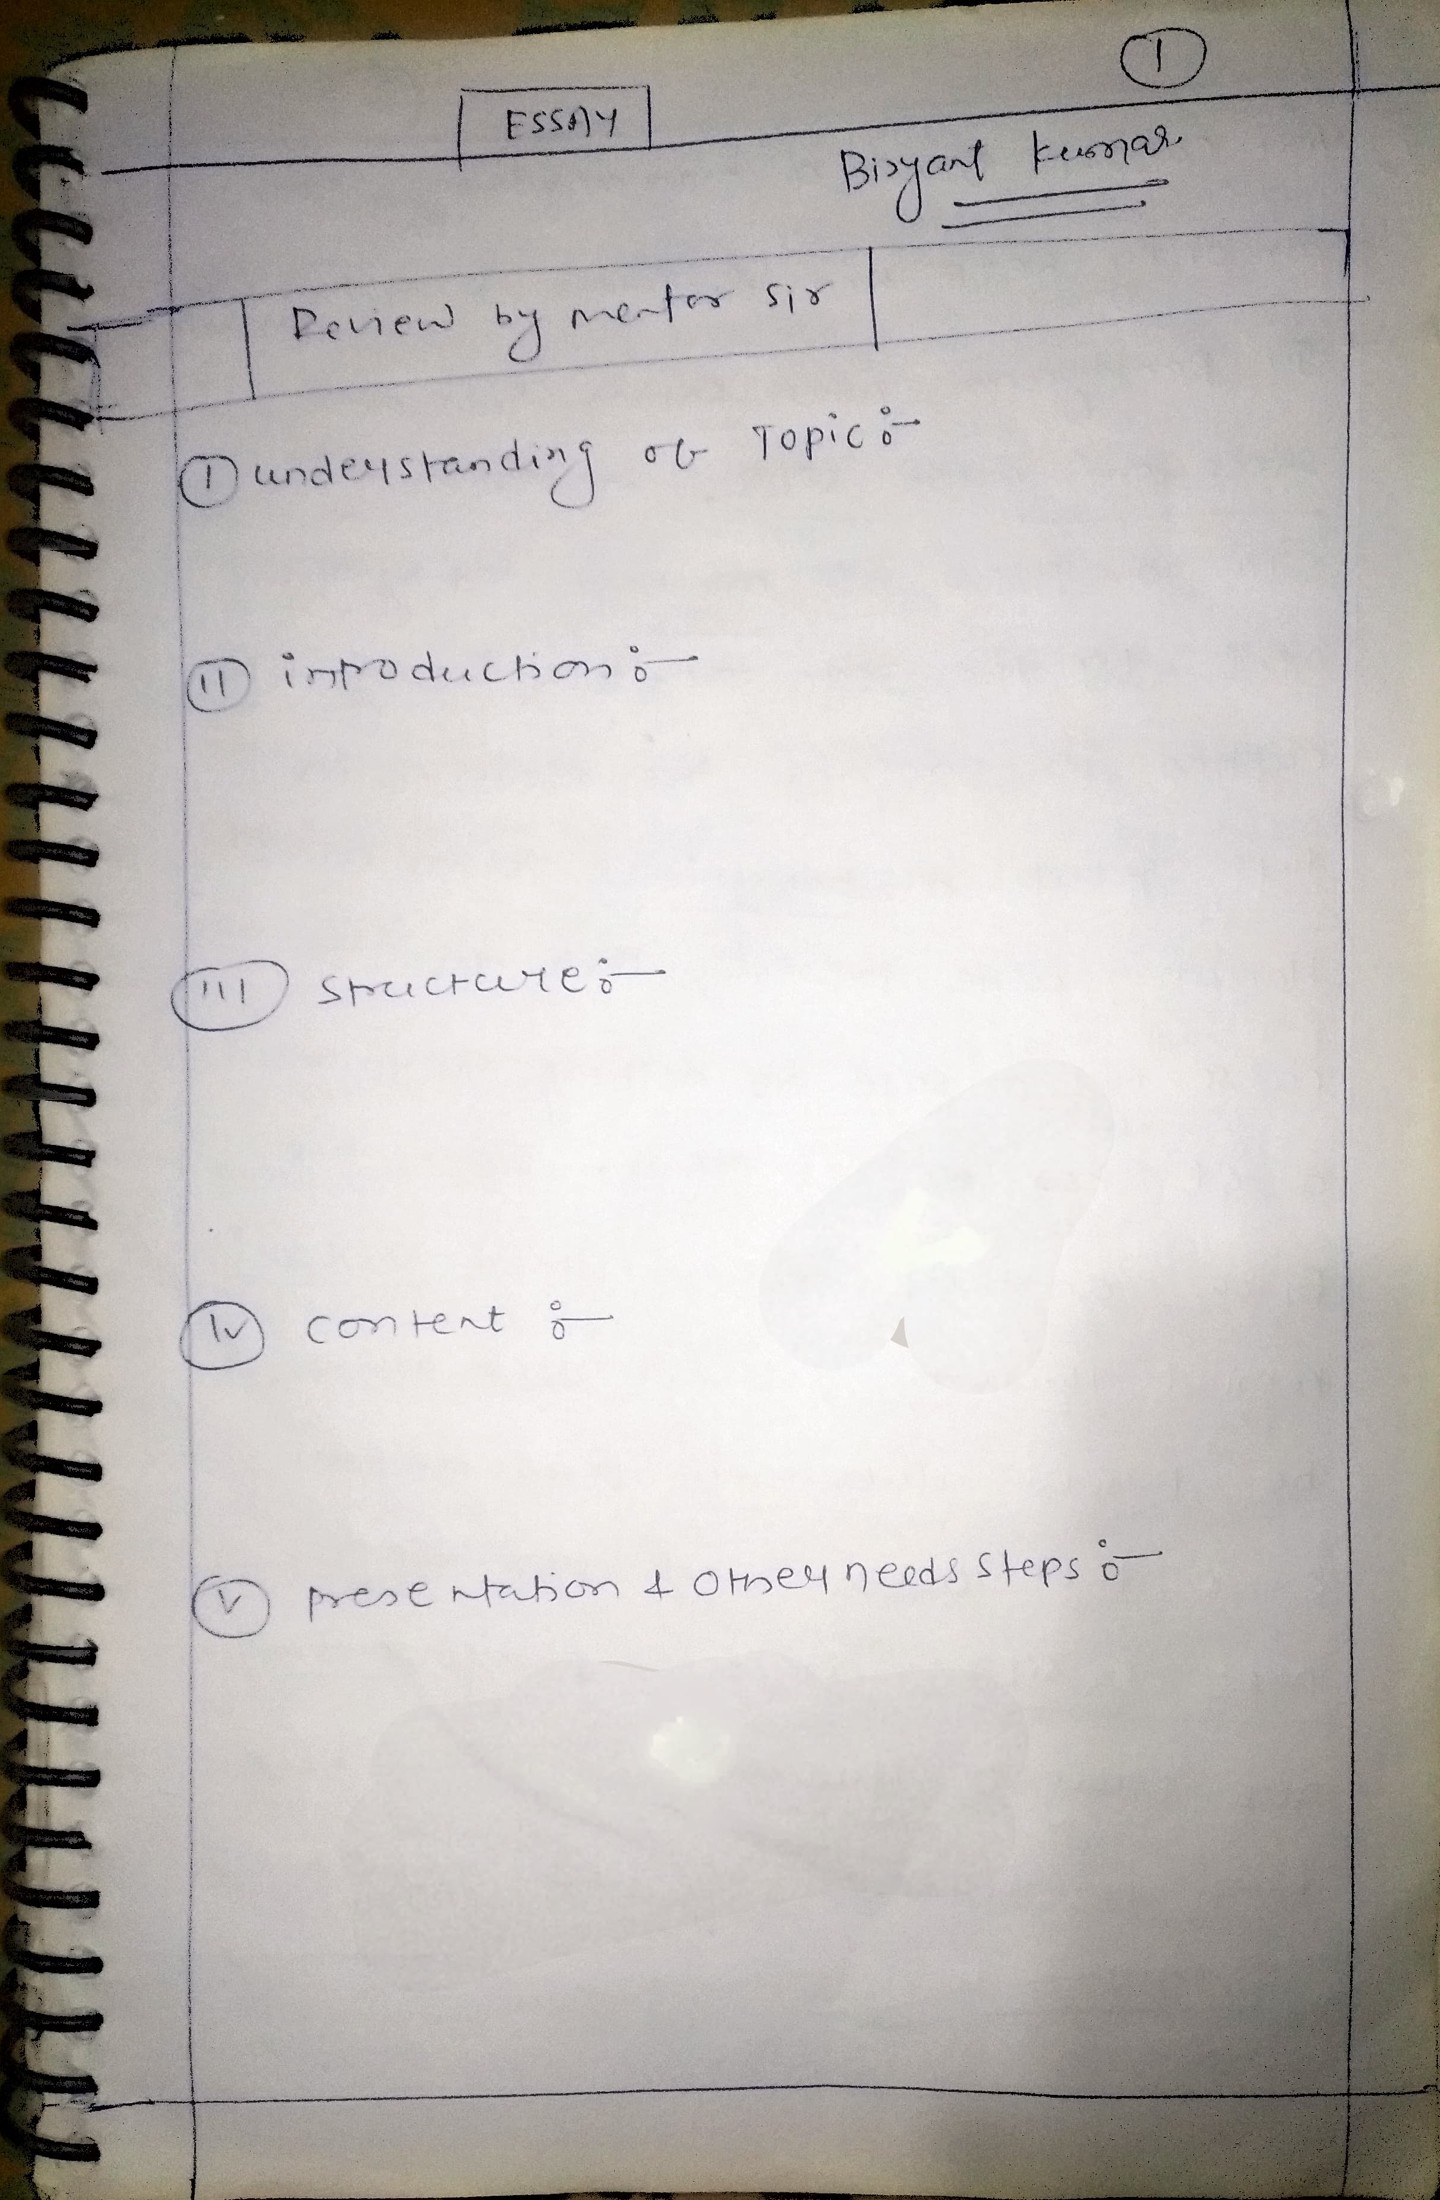 1
ESSAY
Bisyant Kumar
Review by mentor sir
I understanding of Topic :-
II introduction :-
III structure :-
IV content :-
V presentation & other needs steps :-